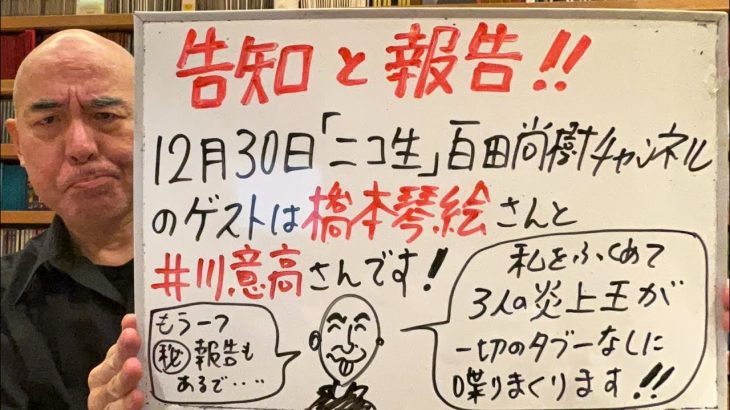 告知と報告!!
12月30日「ニコ生」百田尚樹チャンネル
のゲストは橋本琴絵さんと
井川意高さんです!
もう一つ
㊙報告も
あるで‥‥
私をふくめて
3人の炎上王が
一切のタブーなしに
喋りまくります!!